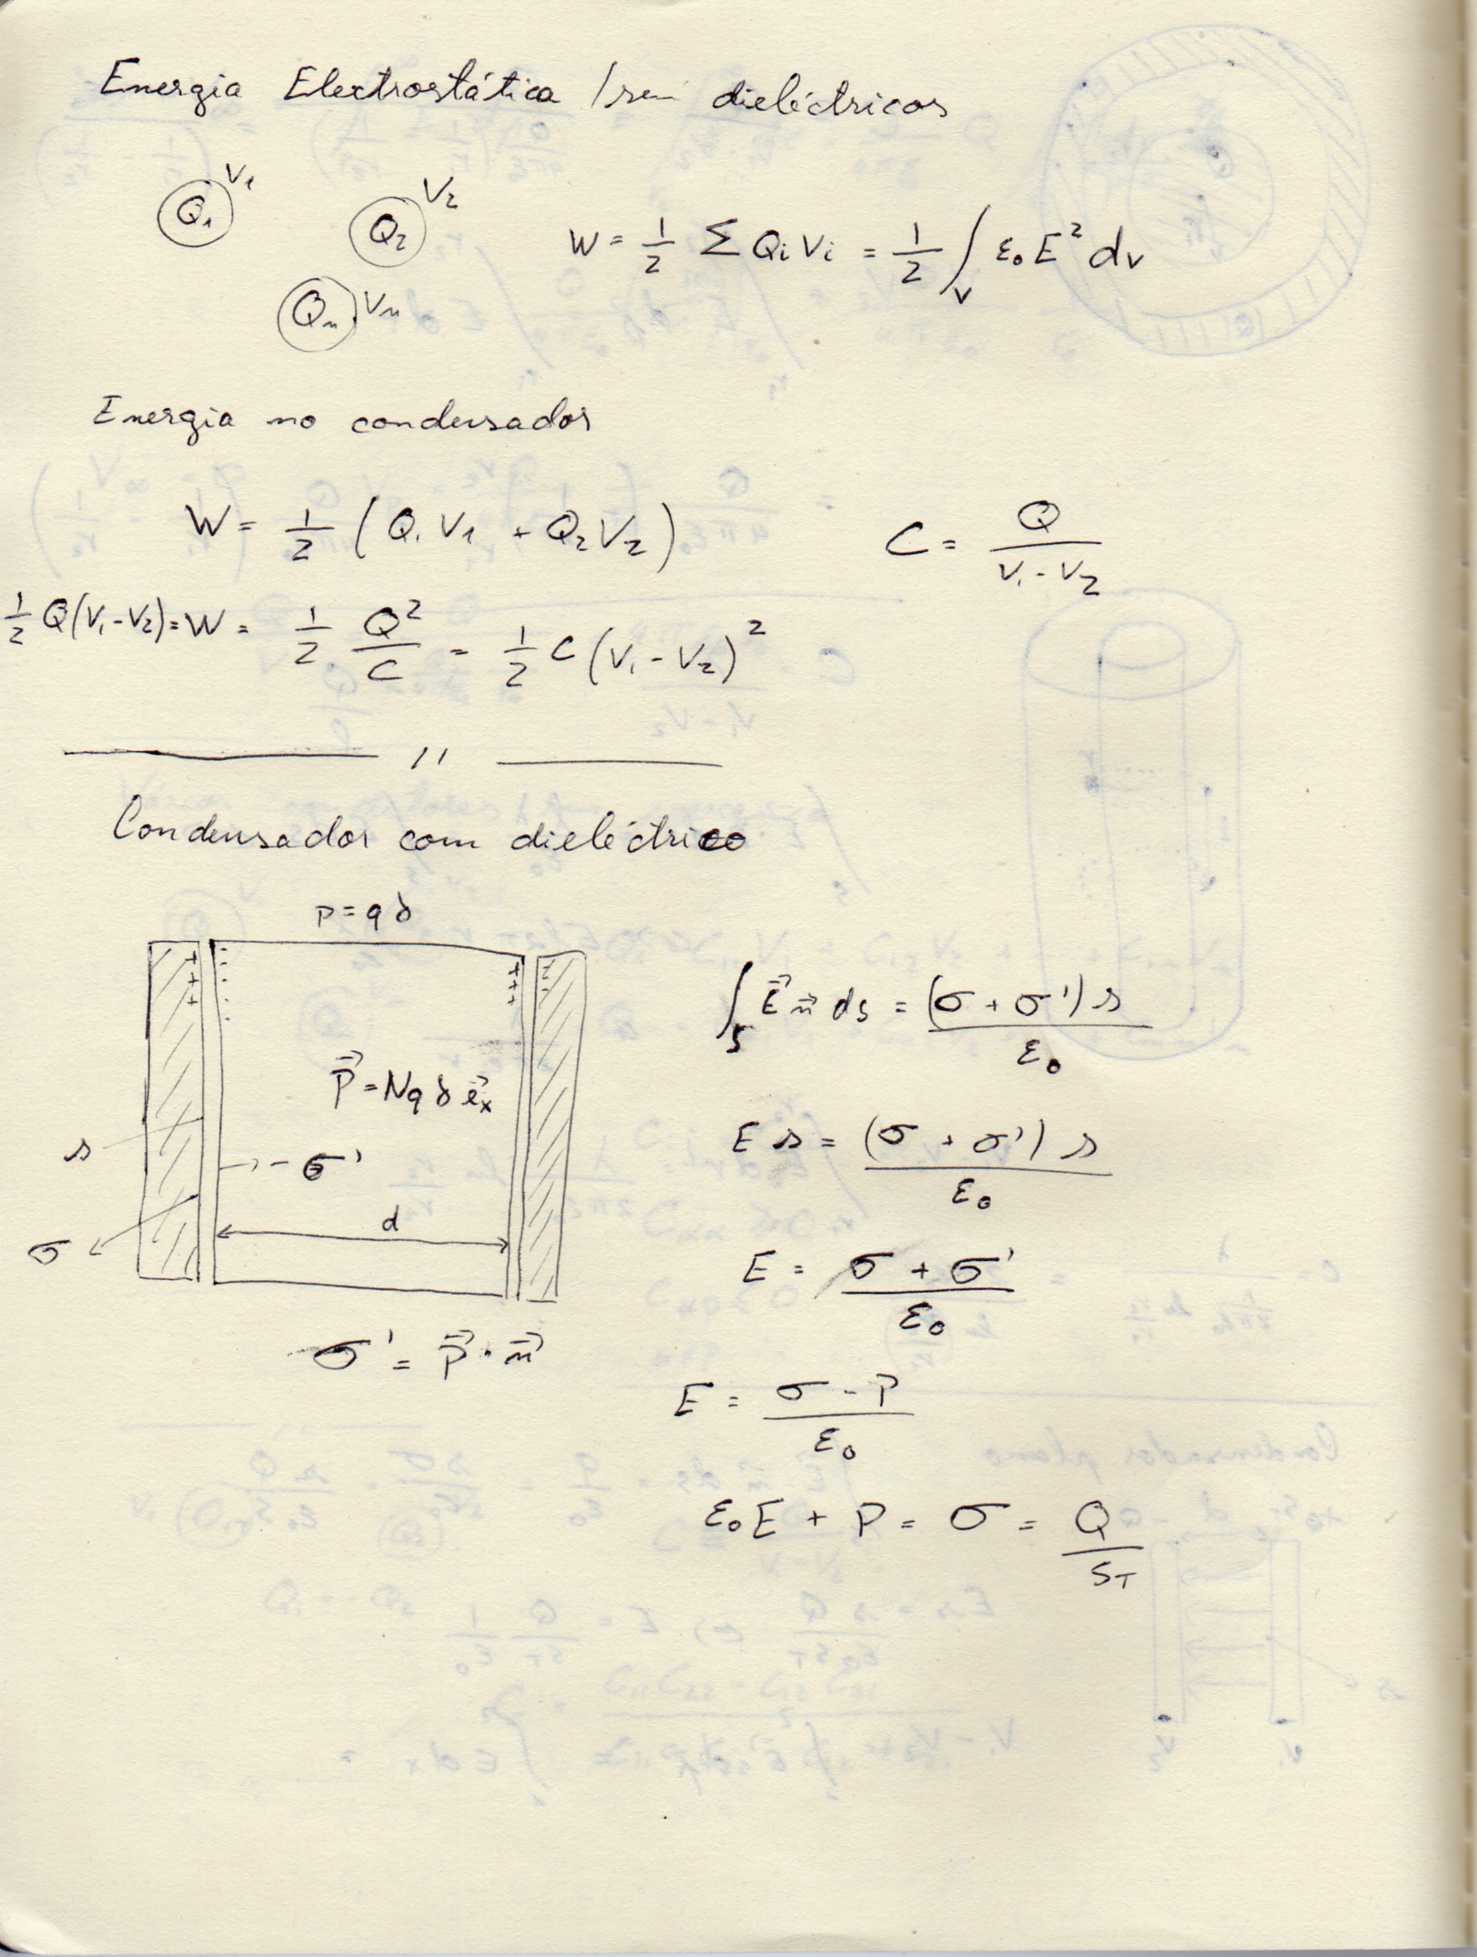 Energia Electrostática /sem dieléctricos
Q₁ V₁
Q₂ V₂
Qₙ Vₙ
W = 1/2 Σ Qi Vi = 1/2 ∫_V ε₀ E² dv
Energia no condensador
W = 1/2 (Q₁ V₁ + Q₂ V₂)
C = Q / (V₁ - V₂)
1/2 Q(V₁ - V₂) = W = 1/2 Q²/C = 1/2 C (V₁ - V₂)²
//
Condensador com dieléctrico
p = qδ
+ + + - - - - + + + - -
P⃗ = Nqδ e⃗ₓ
s
- σ'
d
σ
σ' = P⃗ · n⃗
∫_S E⃗ n⃗ ds = (σ + σ') s / ε₀
E s = (σ + σ') s / ε₀
E = (σ + σ') / ε₀
E = (σ - P) / ε₀
ε₀E + P = σ = Q / S_T